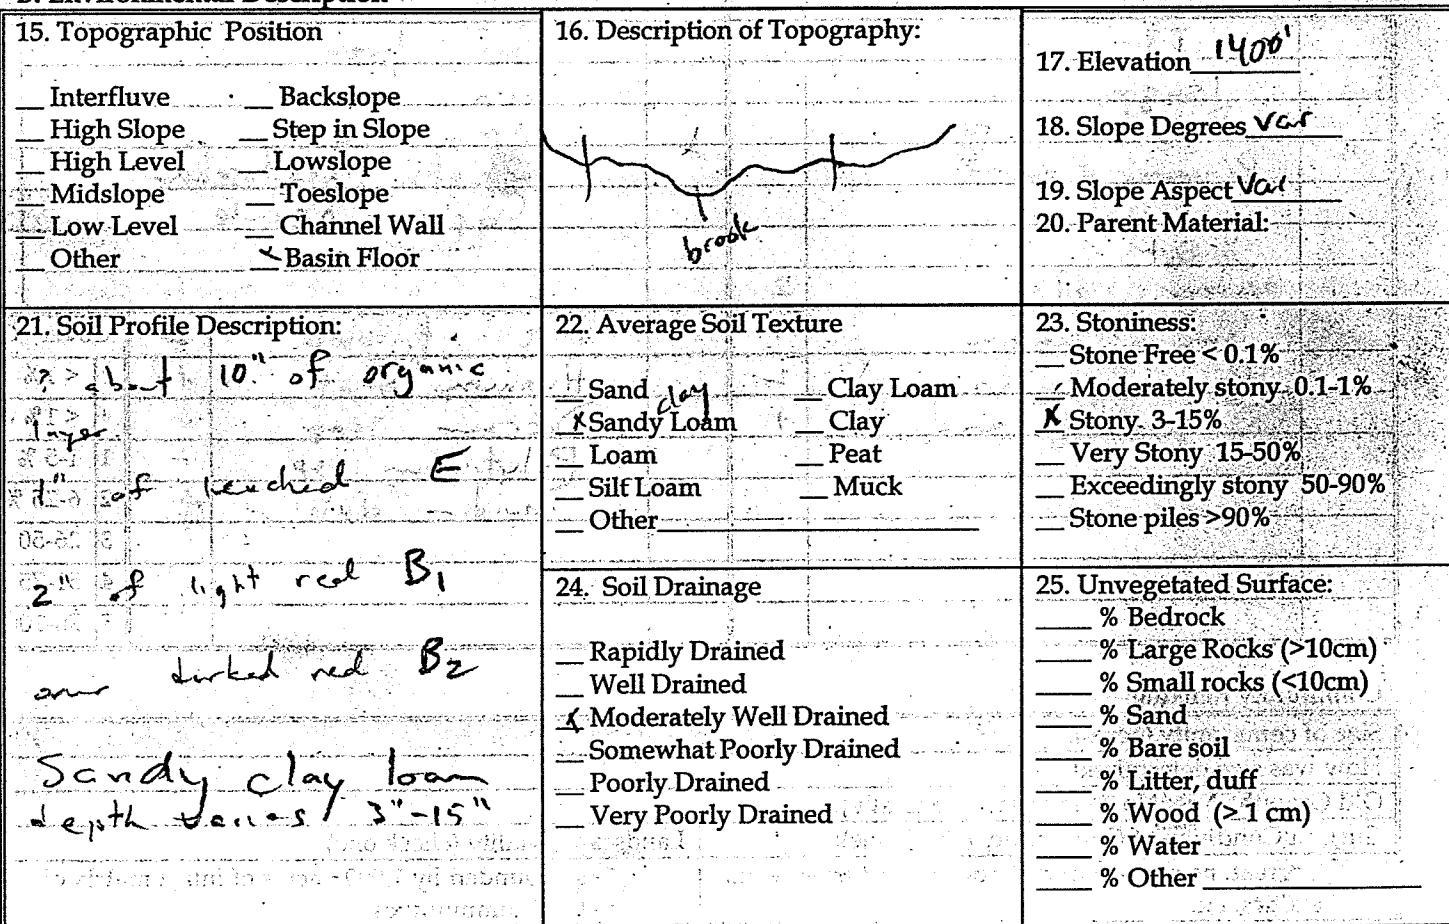 15. Topographic Position
__ Interfluve __ Backslope
__ High Slope __ Step in Slope
__ High Level __ Lowslope
__ Midslope __ Toeslope
__ Low Level __ Channel Wall
__ Other x Basin Floor
16. Description of Topography:
brook
17. Elevation 1400'
18. Slope Degrees Var
19. Slope Aspect Var
20. Parent Material:
21. Soil Profile Description:
? about 10" of organic
layer
1" of leached E
2" of light red B1
over darked red B2
Sandy clay loam
depth varies 3"-15"
22. Average Soil Texture
__ Sand __ Clay Loam
x Sandy clay Loam __ Clay
__ Loam __ Peat
__ Silt Loam __ Muck
__ Other
23. Stoniness:
__ Stone Free < 0.1%
__ Moderately stony 0.1-1%
x Stony 3-15%
__ Very Stony 15-50%
__ Exceedingly stony 50-90%
__ Stone piles >90%
24. Soil Drainage
__ Rapidly Drained
__ Well Drained
x Moderately Well Drained
__ Somewhat Poorly Drained
__ Poorly Drained
__ Very Poorly Drained
25. Unvegetated Surface:
____ % Bedrock
____ % Large Rocks (>10cm)
____ % Small rocks (<10cm)
____ % Sand
____ % Bare soil
____ % Litter, duff
____ % Wood (> 1 cm)
____ % Water
____ % Other